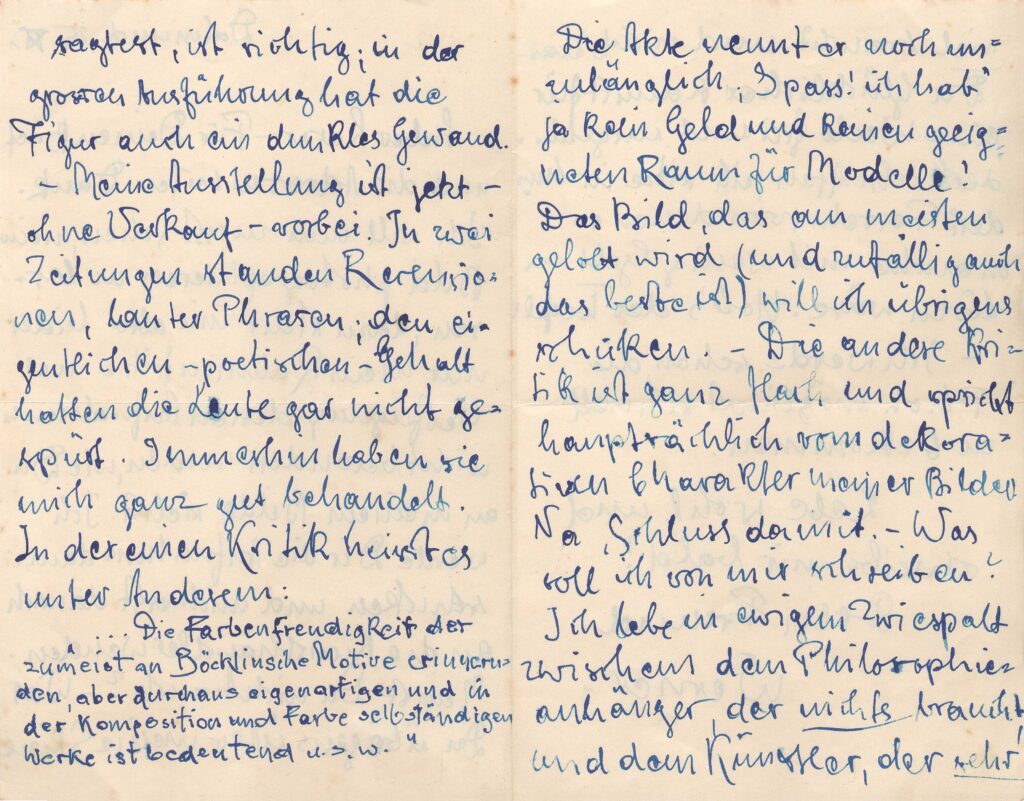 sagtest, ist richtig; in der
grossen Ausführung hat die
Figur auch ein dunkles Gewand.
– Meine Ausstellung ist jetzt –
ohne Verkauf – vorbei. In zwei
Zeitungen standen Rezensio-
nen, lauter Phrasen; den ei-
gentlichen – poetischen – Gehalt
hatten die Leute gar nicht ge-
spürt. Immerhin haben sie
mich ganz gut behandelt.
In der einen Kritik heisst es
unter Anderem:
.... Die Farbenfreudigkeit der
zumeist an Böcklinsche Motive erinnern-
den, aber durchaus eigenartigen und in
der Komposition und Farbe selbständigen
Werke ist bedeutend u.s.w."
Die Akte nennt er noch un=
zulänglich. Spass! ich hab
ja kein Geld und keinen geeig=
neten Raum für Modelle!
Das Bild, das am meisten
gelobt wird (und zufällig auch
das beste ist) will ich übrigens
schicken. – Die andere Kri-
tik ist ganz flach und spricht
hauptsächlich vom dekora-
tiven Charakter meiner Bilder
Na, Schluss damit. – Was
soll ich von mir schreiben?
Ich lebe in ewigem Zwiespalt
zwischem dem Philosophie-
anhänger, der nichts braucht,
und dem Künstler, der sehr